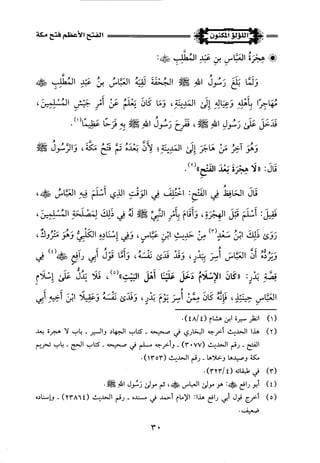 اللؤلؤ المكنون
الفتح الأعظم فتح مكة
هِجْرَةُ العَبَّاسِ بنِ عَبْدِ المُطَّلِبِ ﷺ:
وَلَمَّا بَلَغَ رَسُولُ اللهِ ﷺ الجُحْفَةَ لَقِيَهُ العَبَّاسُ بنُ عَبْدِ المُطَّلِبِ
مُهَاجِرًا بِأَهْلِهِ وَعِيَالِهِ إِلَى المَدِينَةِ، وَمَا كَانَ يَعْلَمُ عَنْ أَمْرِ جَيْشِ المُسْلِمِينَ،
فَدَخَلَ عَلَى رَسُولِ اللهِ ﷺ، فَفَرِحَ رَسُولُ اللهِ ﷺ بِهِ فَرَحًا عَظِيمًا(١).
وَهُوَ آخِرُ مَنْ هَاجَرَ إِلَى المَدِينَةِ؛ لِأَنَّ بَعْدَهُ تَمَّ فَتْحُ مَكَّةَ، وَالرَّسُولُ ﷺ
قَالَ: «لَا هِجْرَةَ بَعْدَ الفَتْحِ»(٢).
قَالَ الحَافِظُ فِي الفَتْحِ: اخْتُلِفَ فِي الوَقْتِ الذِي أَسْلَمَ فِيهِ العَبَّاسُ ﷺ،
فَقِيلَ: أَسْلَمَ قَبْلَ الهِجْرَةِ، وَأَقَامَ بِأَمْرِ النَّبِيِّ ﷺ لَهُ فِي ذَلِكَ لِمَصْلَحَةِ المُسْلِمِينَ،
رَوَى ذَلِكَ ابْنُ سَعْدٍ(٣) مِنْ حَدِيثِ ابْنِ عَبَّاسٍ، وَفِي إِسْنَادِهِ الكَلْبِيُّ وَهُوَ مَتْرُوكٌ،
وَيَرُدُّهُ أَنَّ العَبَّاسَ أُسِرَ بِبَدْرٍ، وَقَدْ فَدَى نَفْسَهُ، وَأَمَّا قَوْلُ أَبِي رَافِعٍ ﷺ(٤) فِي
قِصَّةِ بَدْرٍ: «كَانَ الإِسْلَامُ دَخَلَ عَلَيْنَا أَهْلَ البَيْتِ»(٥)، فَلَا يَدُلُّ عَلَى إِسْلَامِ
العَبَّاسِ حِينَئِذٍ، فَإِنَّهُ كَانَ مِمَّنْ أُسِرَ يَوْمَ بَدْرٍ، وَفَدَى نَفْسَهُ وَعَقِيلًا ابْنَ أَخِيهِ أَبِي
(١) انظر سيرة ابن هشام (٤/٤٨).
(٢) هذا الحديث أخرجه البخاري في صحيحه ـ كتاب الجهاد والسير ـ باب لا هجرة بعد
الفتح ـ رقم الحديث (٣٠٧٧) ـ وأخرجه مسلم في صحيحه ـ كتاب الحج ـ باب تحريم
مكة وصيدها وخلاها ـ رقم الحديث (١٣٥٣).
(٣) في طبقاته (٤/٣٢٣).
(٤) أبو رافع ﷺ: هو مولى العباس ﷺ، ثم مولى رَسُول الله ﷺ.
(٥) أخرج قول أبي رافع هذا: الإمام أحمد في مسنده ـ رقم الحديث (٢٣٨٦٤) ـ وإسناده
ضعيف.
٣٠